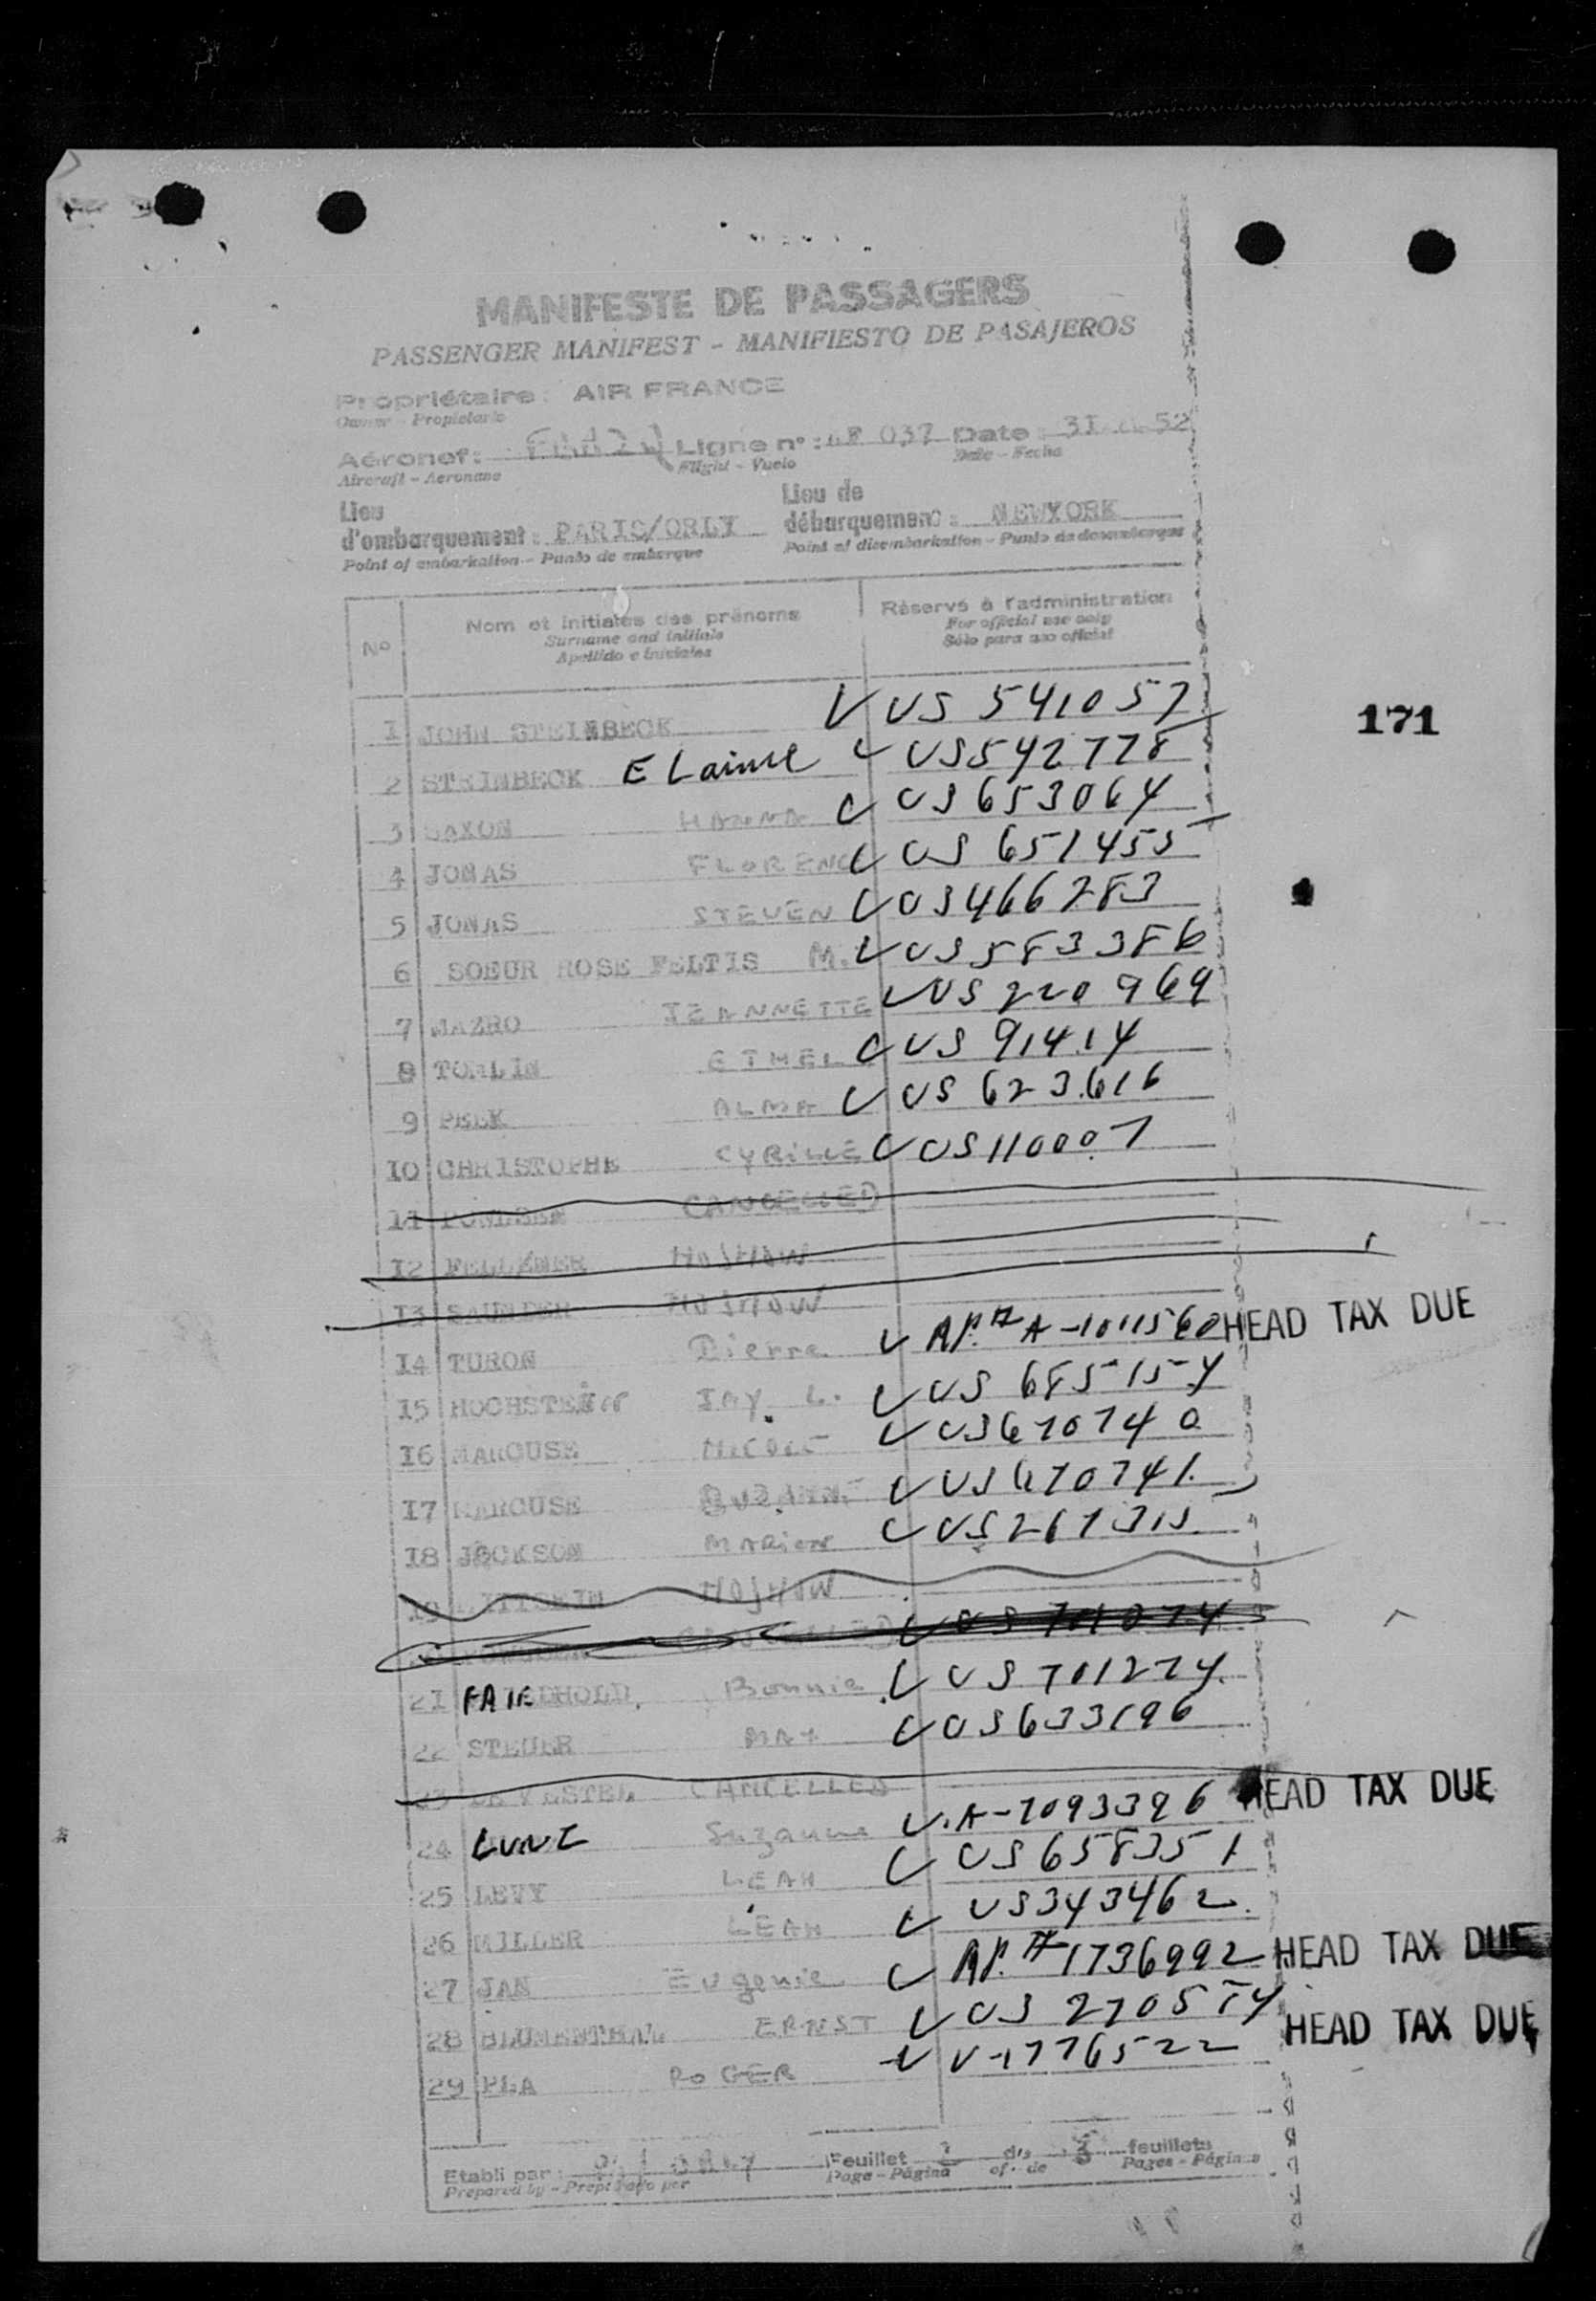 MANIFESTE DE PASSAGERS
PASSENGER MANIFEST - MANIFIESTO DE PASAJEROS
Propriétaire: AIR FRANCE
Owner - Propietario
Aéronef: Ligne n°: AF 037 Date: 31 52
Aircraft - Aeronave Flight - Vuelo Date - Fecha
Lieu d'embarquement: PARIS/ORLY Lieu de débarquement: NEWYORK
Point of embarkation - Punto de embarque Point of disembarkation - Punto de desembarque
N° Nom et initiales des prénoms Réservé à l'administration
Surname and initials For official use only
Apellido e iniciales Sólo para uso oficial
1 JOHN STEINBECK V US 541057
171
2 STEINBECK ELaine V US542778
3 SAXON HANNA V US653064
4 JONAS FLORENC V US 651455
5 JONAS STEVEN V US466283
6 SOEUR ROSE FELTIS M. V US583386
7 MAZRO JEANNETTE V US 220969
8 TOMLIN ETHEL V US 91414
9 PEEK ALMA V US 623616
10 CHRISTOPHE CYRILLE V US110007
11 CANCELLED
12 FELLENER NOSHOW
13 SAUNDER NOSHOW
14 TURON Pierre V A-1011560 HEAD TAX DUE
15 HOCHSTEIN Iny L. V US 685154
16 MAROUSE Nicole V US670740
17 MAROUSE SUZANNE V US670741
18 JACKSON Marion V US267315
19 NOSHOW
CANCELLED
21 FAIR Bonnie V US 701274
22 STEUER MAX V US633196
23 CANCELLED
24 Suzanne V. A-7093396 HEAD TAX DUE
25 LEVY LEAH V US658351
26 MILLER LEAH V US343462
27 JAN Eugenie V 1736992 HEAD TAX DUE
28 BLUMENTHAL ERNST V US 270574
29 PLA ROGER V V-1776522 HEAD TAX DUE
Etabli par: ORLY Feuillet de 3 feuillets
Prepared by - Preparado por Page - Página of - de Pages - Páginas